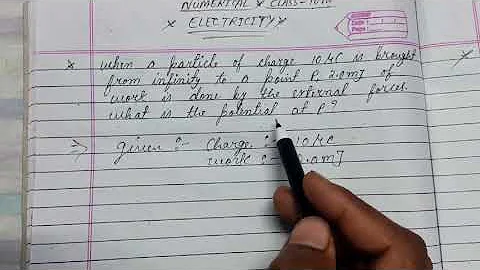 NUMERICAL × CLASS-10th
× ELECTRICITY ×
Date :
Page :
× when a particle of charge 10 μC is brought ×
from infinity to a point P, 2.0mJ of
work is done by the external forces
what is the potential at P?
⇒ given :- Charge : 10 μC
work :- 2.0mJ